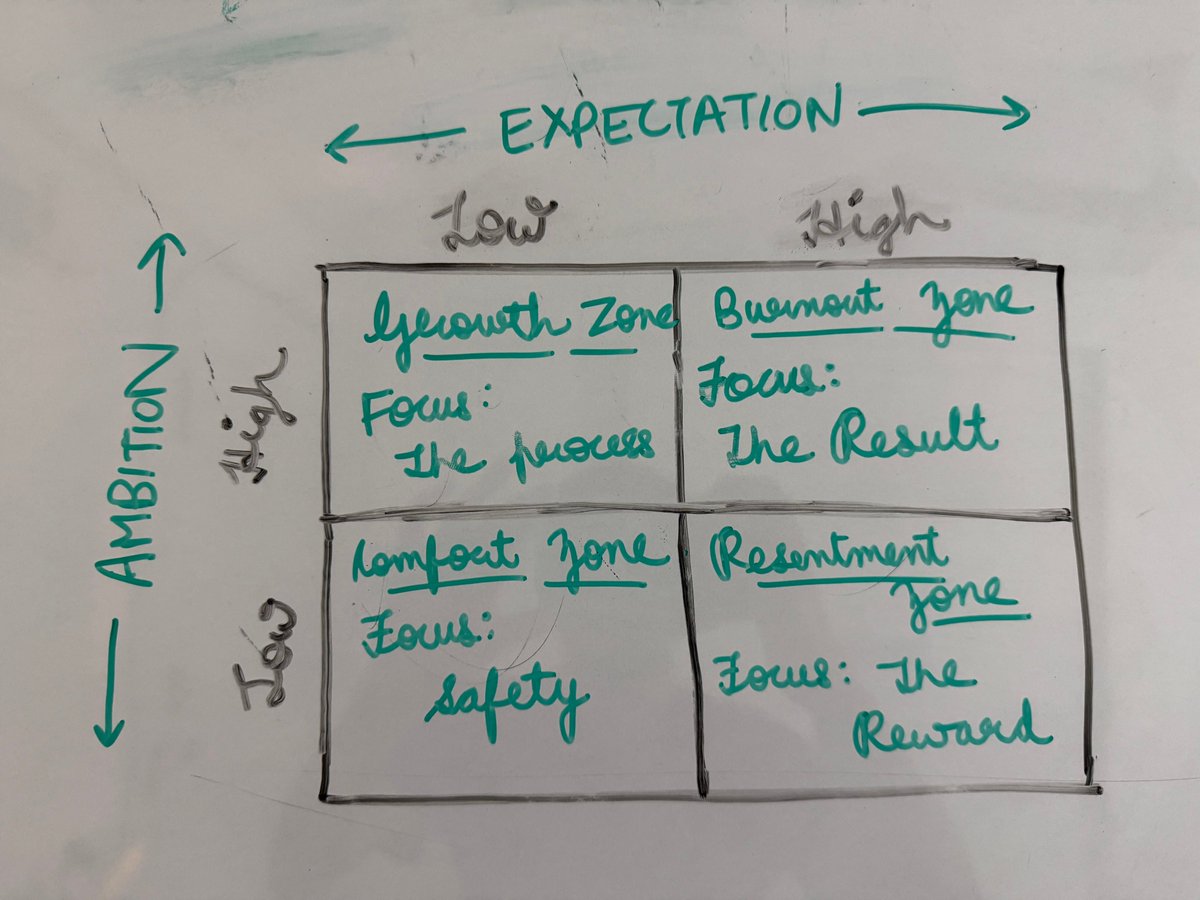 EXPECTATION
Low High
AMBITION
High
Low
Growth Zone
Focus:
The process
Burnout Zone
Focus:
The Result
Comfort Zone
Focus:
Safety
Resentment
Zone
Focus: The
Reward